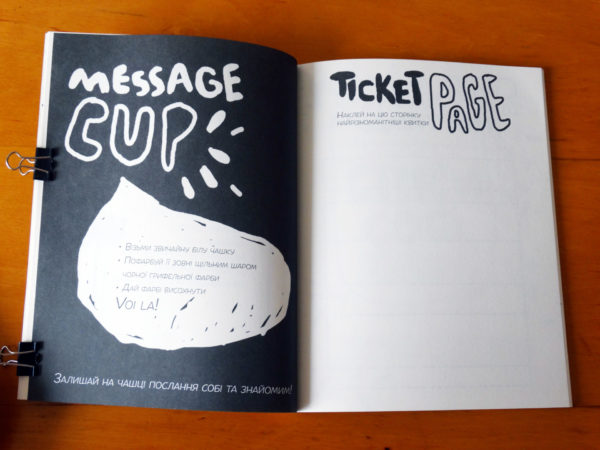 MESSAGE
CUP
• Візьми звичайну білу чашку
• Пофарбуй її зовні щільним шаром
чорної грифельної фарби
• Дай фарбі висохнути
VOI LA!
Залишай на чашці послання собі та знайомим!
TICKET PAGE
Наклей на цю сторінку
найрізноманітніші квитки